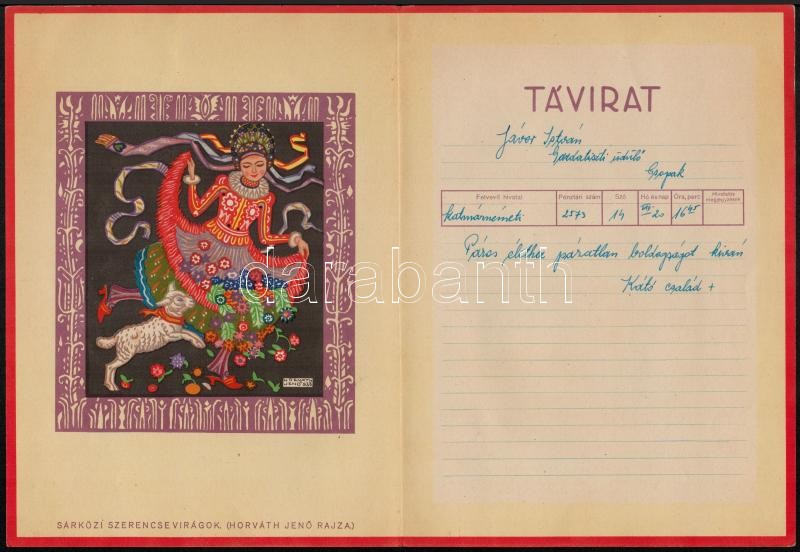 TÁVIRAT
Jávor István
Gazdatiszti üdülő
Csopak
Felvevő hivatal Pénztári szám Szó Hó és nap Óra, perc Hivatalos megjegyzések
kálmánnémeti 2573 14 VII 20 16 45
Páros élethez páratlan boldogságot kiván
Kátó család +
darabanth
SÁRKÖZI SZERENCSEVIRÁGOK. (HORVÁTH JENŐ RAJZA.)